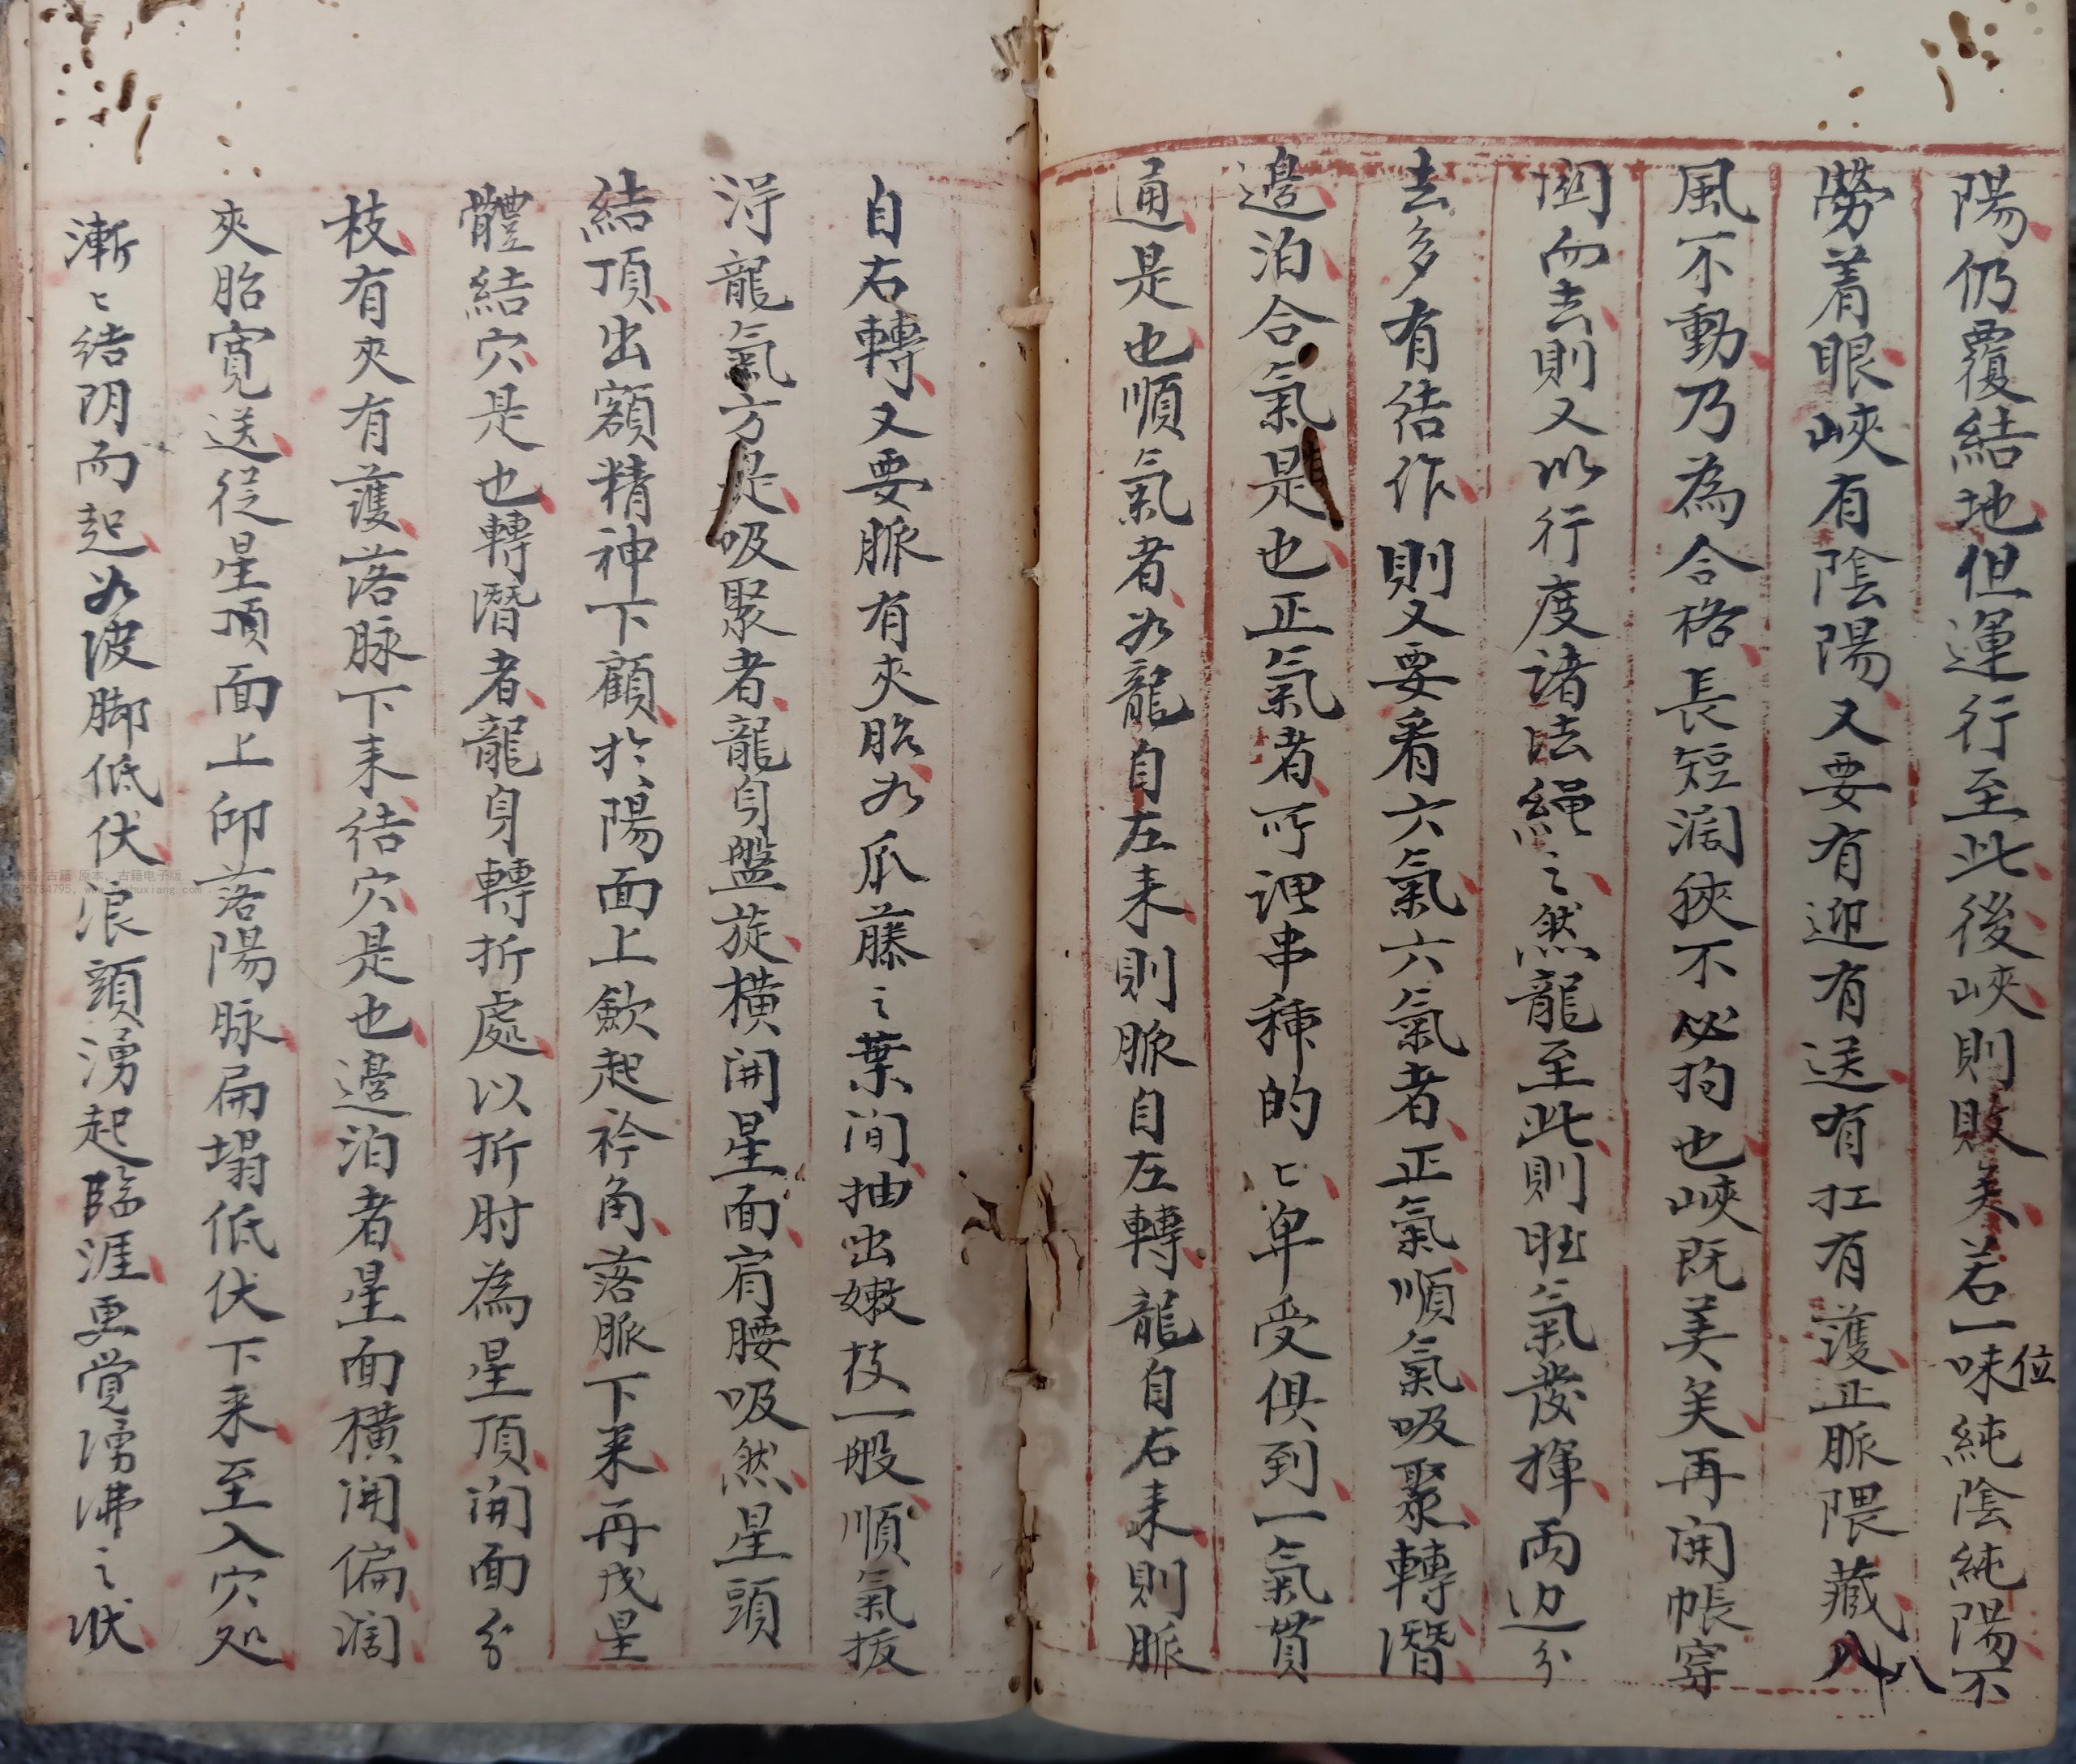 陽仍覆結地但運行至此後峽則敗矣若一味純陰純陽不
位
勞着眼峽有陰陽又要有迎有送有扛有護正脈隈藏八
風不動乃為合格長短濶狹不必拘也峽既美矣再開帳穿
而去則又以行度諸法繩之然龍至此則旺氣發揮两边分
去多有结作則又要看六氣六氣者正氣順氣吸聚轉潛
邉泊合氣是也正氣者所謂串種的〻卑受俱到一氣貫
通是也順氣者如龍自左来則脈自左轉龍自右来則脈
自右轉又要脈有夾胎如瓜藤之葉间抽出嫩枝一般順氣扳
淂龍氣方是吸聚者龍身盤旋橫開星面肩腰吸然星頭
結頂出額精神下顧於陽面上歛起衿角落脈下来再成星
體結穴是也轉潛者龍身轉折處以折肘為星頂開面分
枝有夾有護落脉下来结穴是也邉泊者星面橫開偏濶
夾胎寬送從星頂面上仰落陽脉扁塌低伏下来至入穴处
漸〻结阴而起如波脚低伏浪頭湧起臨涯更覚湧沸之状